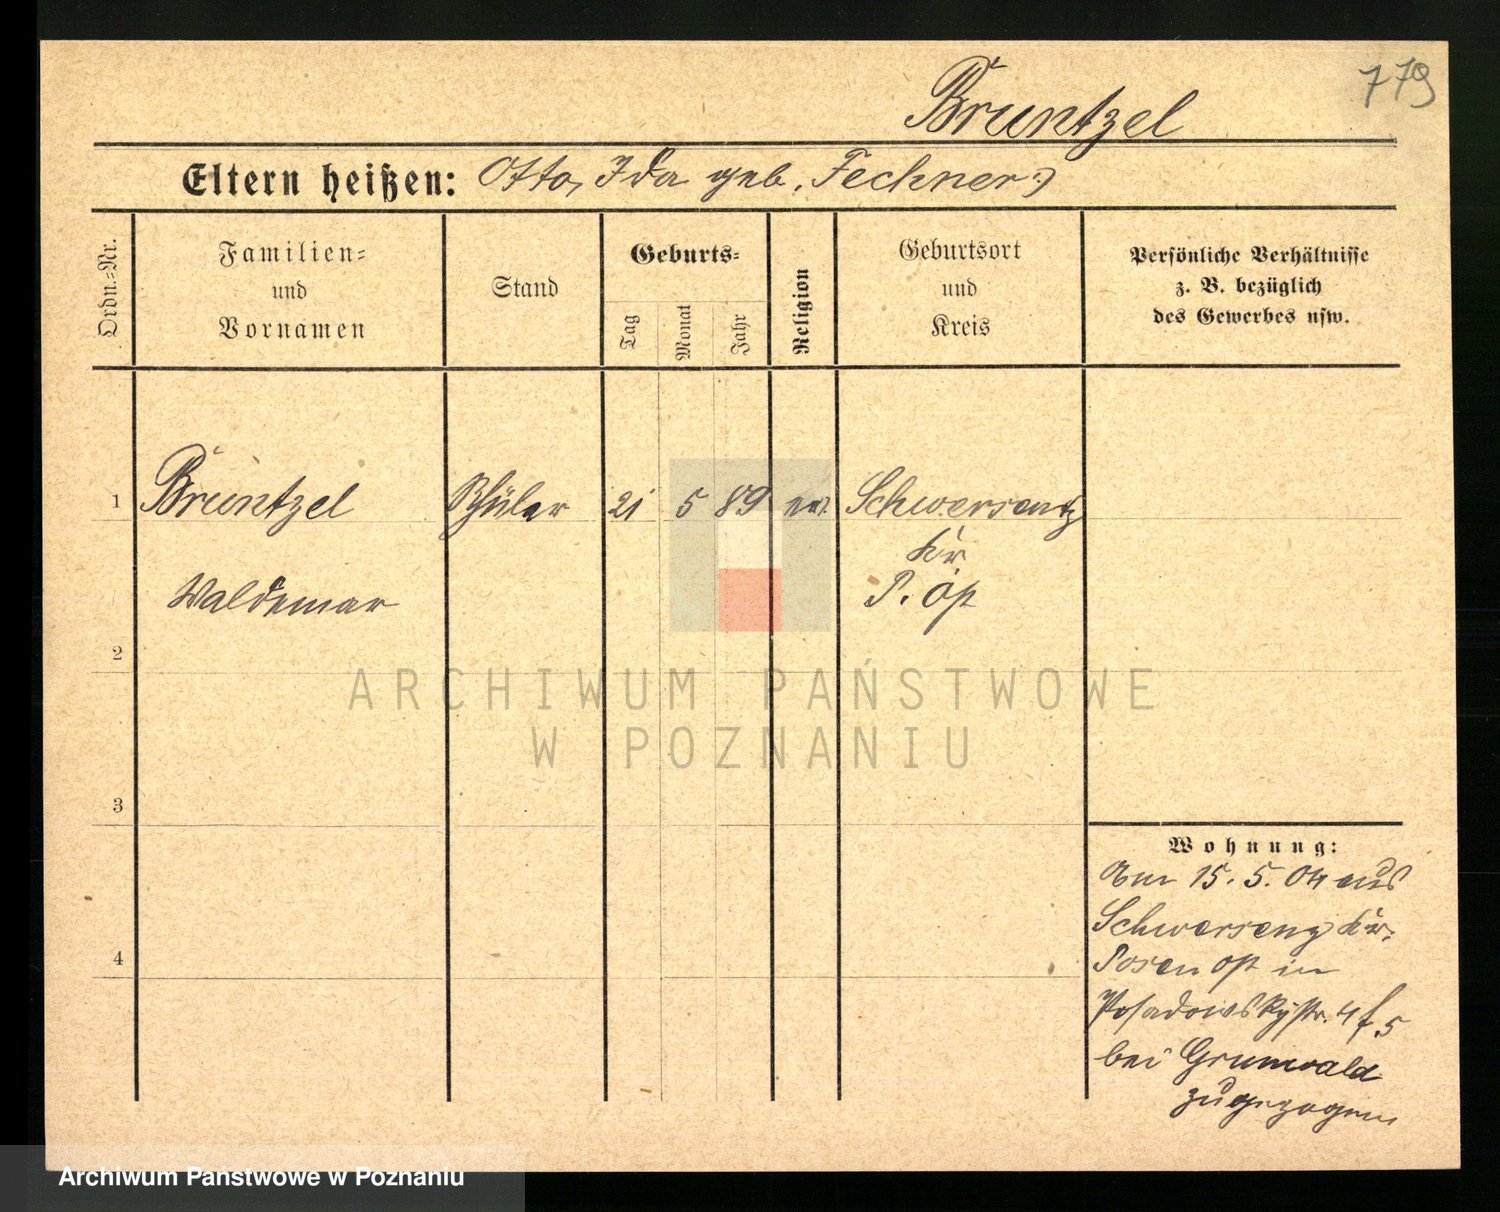 779
Bruntzel
Eltern heißen: Otto, Ida geb. Fechner
Ordn.-Nr.
Familien-
und
Vornamen
Stand
Geburts-
Tag
Monat
Jahr
Religion
Geburtsort
und
Kreis
Persönliche Verhältnisse
z. B. bezüglich
des Gewerbes usw.
1 Bruntzel Schüler 21 5 89 ev. Schwersentz
Kr.
Waldemar P. Ost
2
3
4
Wohnung:
Am 15. 5. 04 aus
Schwersenz Kr.
Posen Ost in
Posadowskystr. 4 f. 5
bei Grunwald
zugezogen
ARCHIWUM PAŃSTWOWE
W POZNANIU
Archiwum Państwowe w Poznaniu